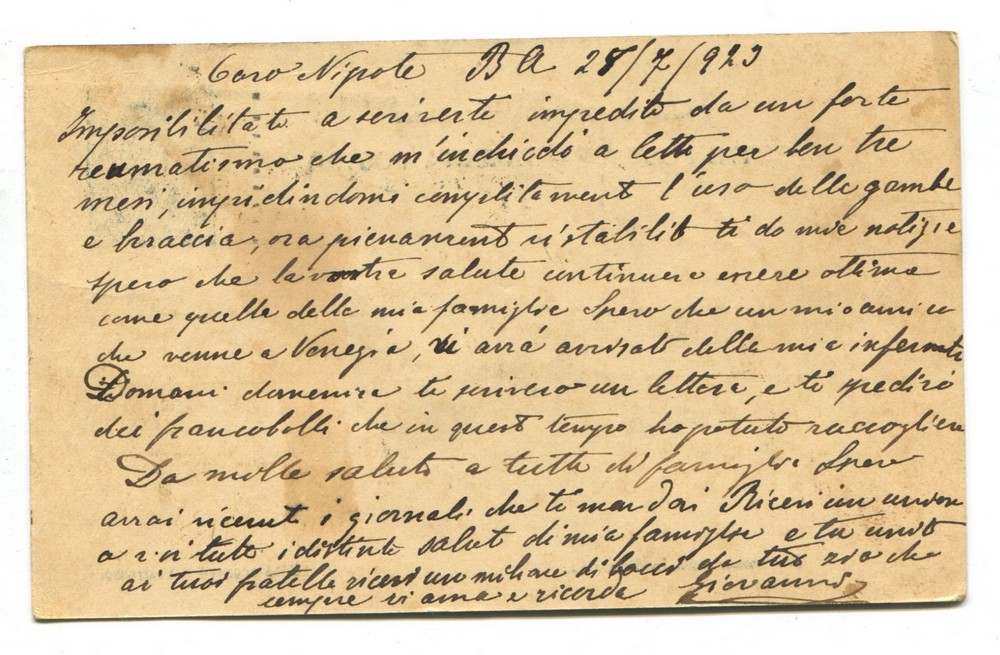 Caro Nipote B A 28/7/923
Imposibilitato a scriverte impedito da un forte
reumatismo che m'inchiodó a letto per ben tre
mesi, impiedindomi complitament l'uso delle gambe
e braccia, ora pienament ristabilito ti do mie notizie
spero che la vostra salute continuera essere ottima
come quella della mia famiglia Spero che un mio amico
che venne a Venezia, vi avrá avvisato della mia infermita
Domani domenica te scrivero un lettera, e ti spediró
dei francobolli che in questo tempo ho potuto raccogliere
Da mille saluti a tutti di famiglia Spero
avrai ricevuti i giornali che ti mandai Ricevi un unione
a vi tutti i distinti saluti di mia famiglia e tu unito
ai tuoi fratelli ricevi un miliare di bacci da tuo zio che
sempre vi ama e ricorda Giovanni